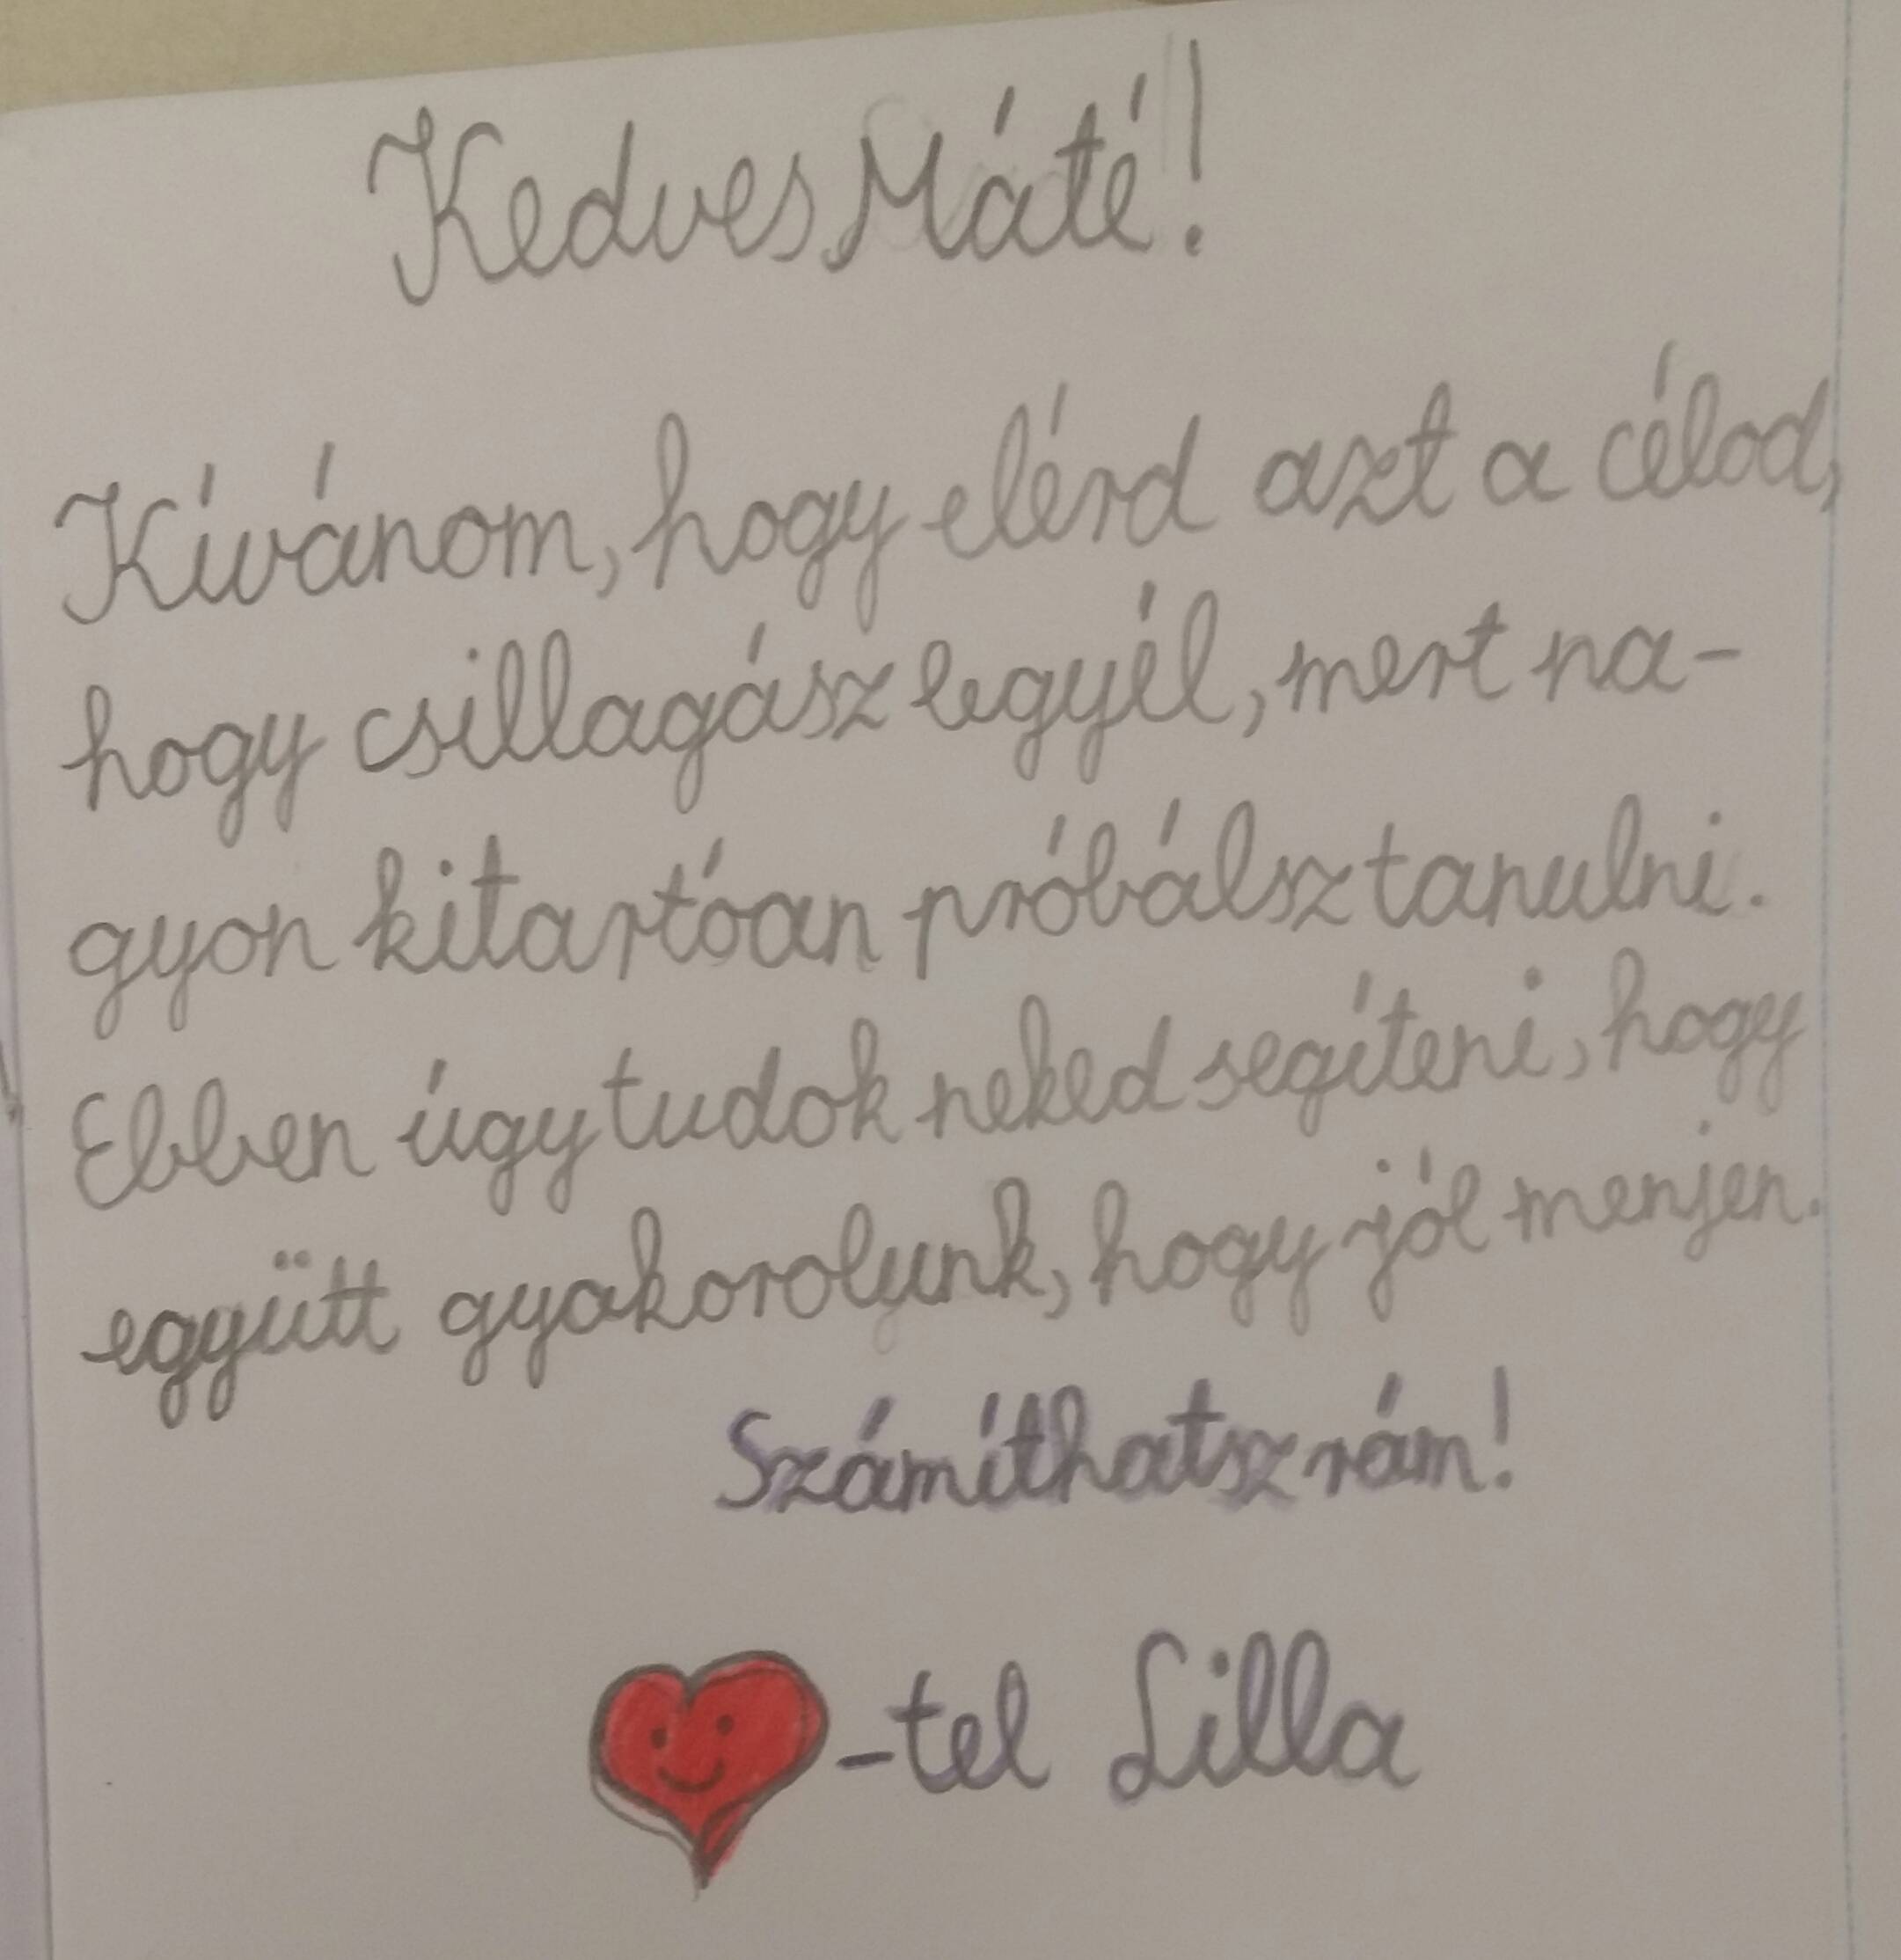 Kedves Máté!
Kívánom, hogy elérd azt a célod,
hogy csillagász legyél, mert na-
gyon kitartóan próbálsz tanulni.
Ebben úgy tudok neked segíteni, hogy
együtt gyakorolunk, hogy jól menjen.
Számíthatsz rám!
-tel Lilla